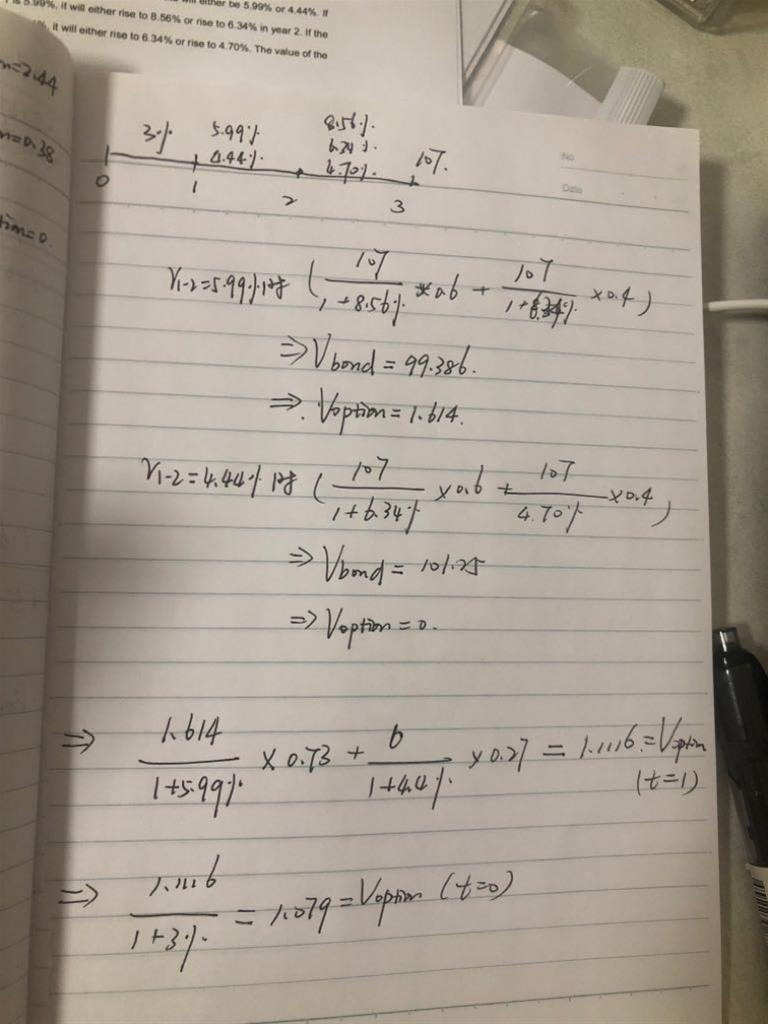 will either be 5.99% or 4.44%. If
is 5.99%, it will either rise to 8.56% or rise to 6.34% in year 2. If the
%, it will either rise to 6.34% or rise to 4.70%. The value of the
n=2.44
n=0.38
tion=0.
No
Date
3% 5.99% 8.56%.
4.44% 6.34%. 107.
4.70%.
0 1 2 3
r1-2=5.99%时 ( 107 / 1+8.56% ×0.6 + 107 / 1+6.34% ×0.4 )
⇒ Vbond = 99.386.
⇒. Voption = 1.614.
r1-2=4.44%时 ( 107 / 1+6.34% ×0.6 + 107 / 4.70% ×0.4 )
⇒ Vbond = 101.25
⇒ Voption = 0.
⇒ 1.614 / 1+5.99% × 0.73 + 0 / 1+4.4%. × 0.27 = 1.1116.=Voption
(t=1)
⇒ 1.1116 / 1+3%. = 1.079 = Voption (t=0)